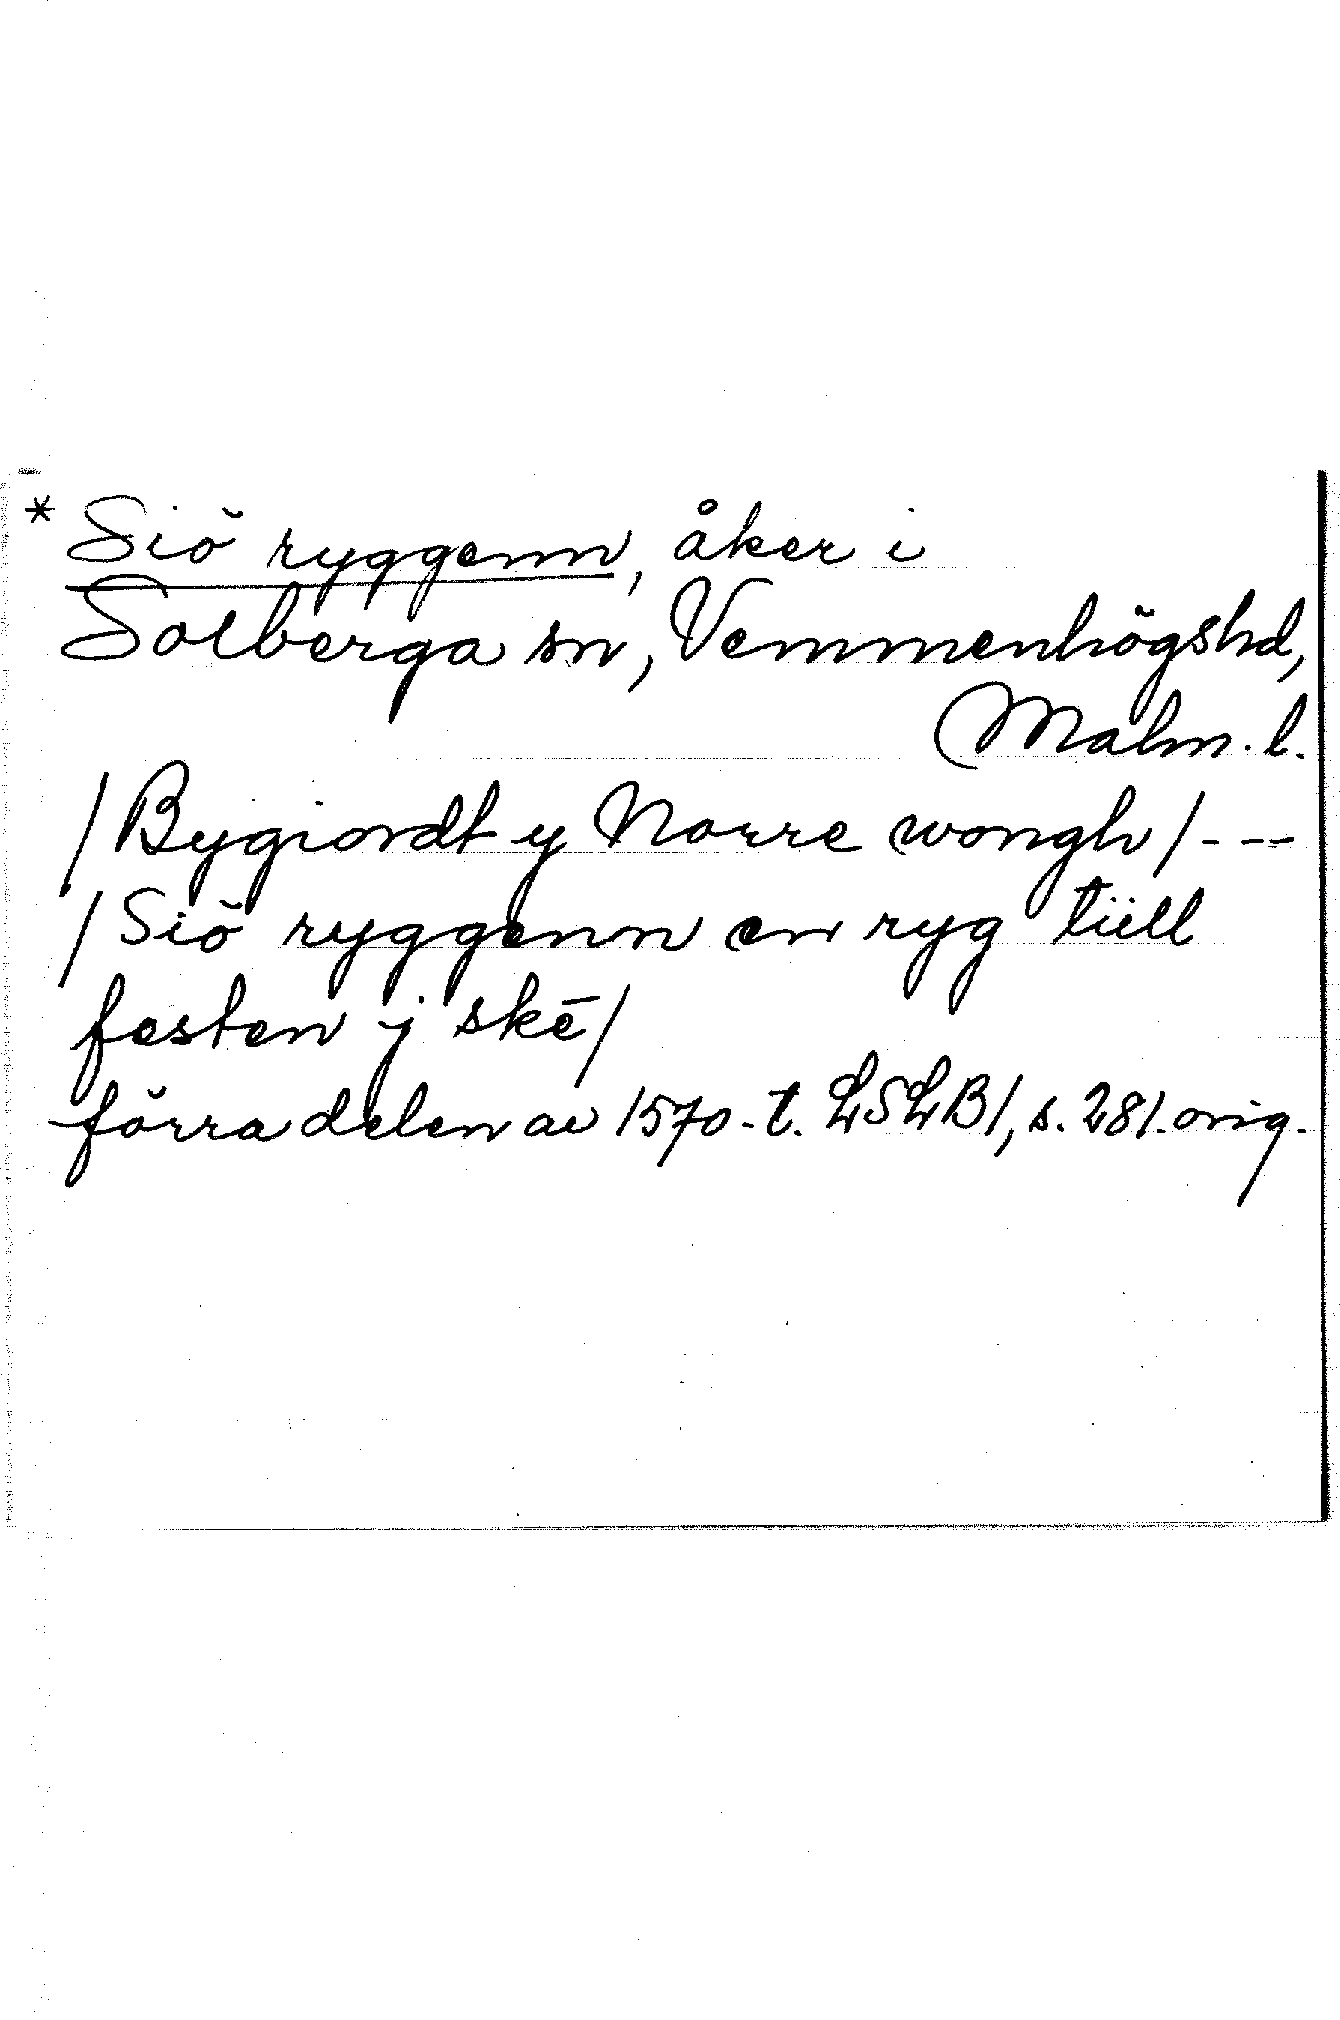 * Siö ryggenn, åker i
Solberga sn, Vemmenhögshd,
Malm. l.
/Bÿgiordt y Norre wongh/---
/Siö ryggenn en ryg tiill
festen j skē/
förra delen av 1570-t. LSLB1, s. 281. orig.